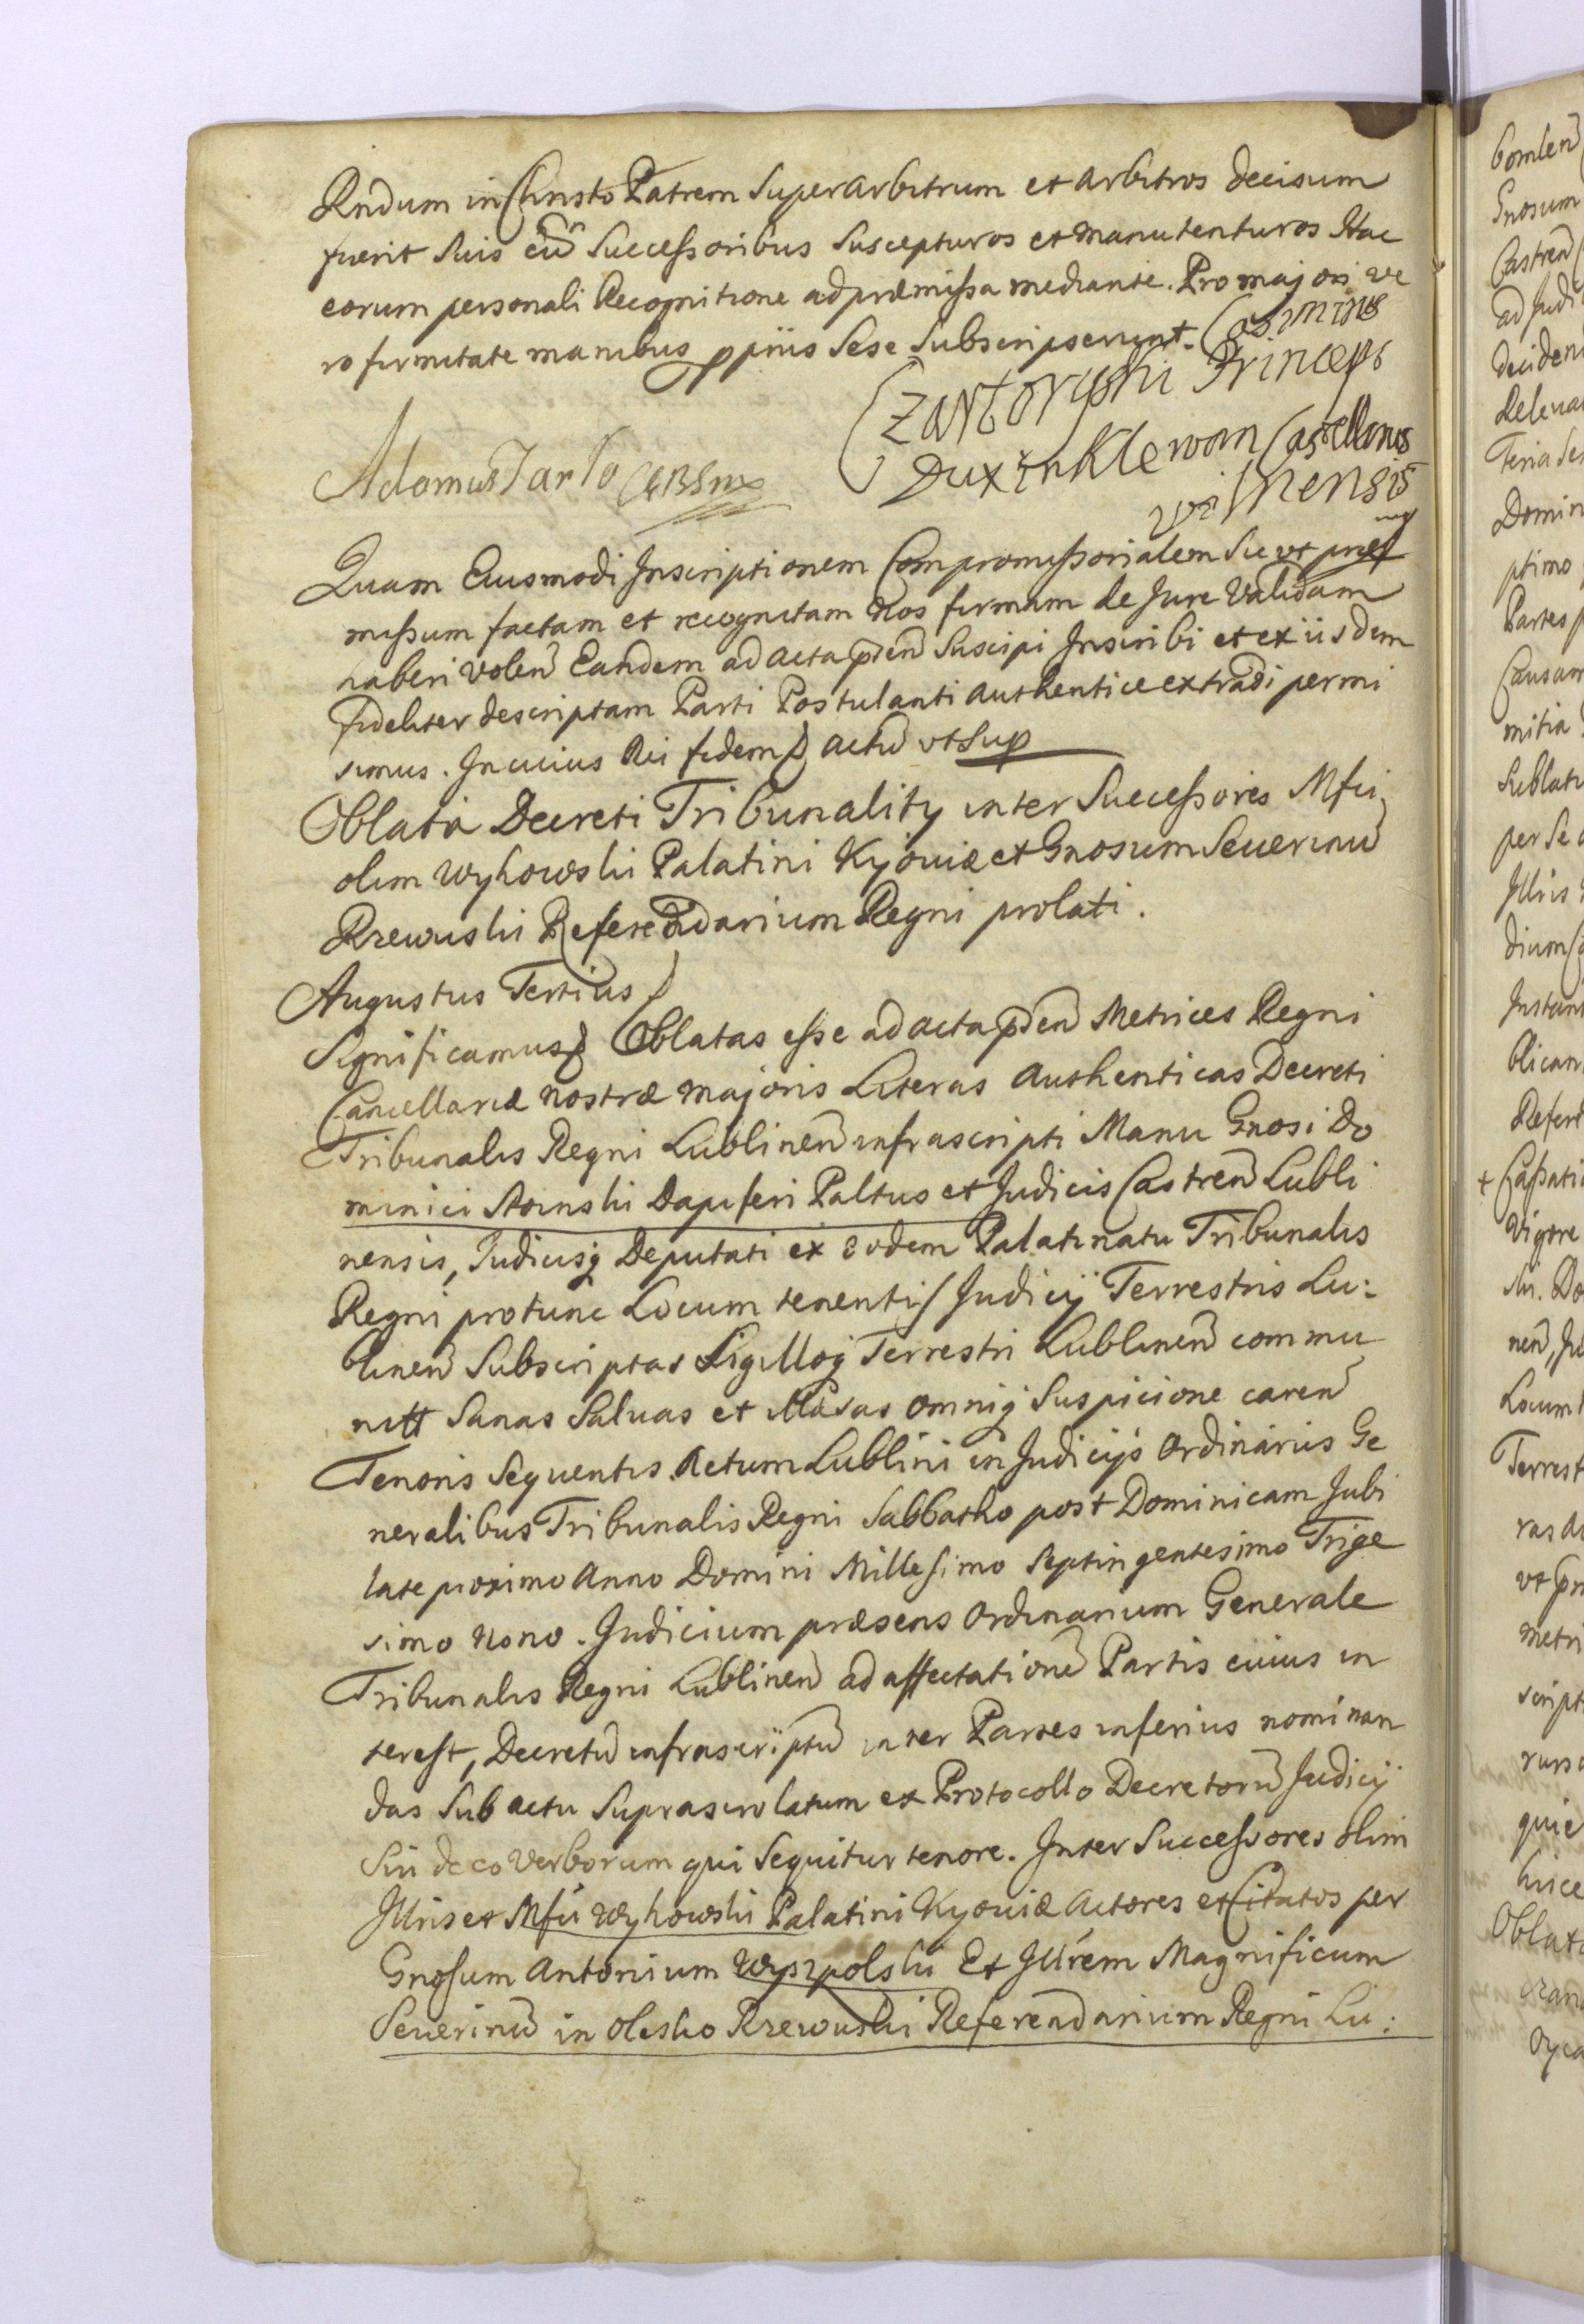 Rndum in Christo Patrem Superarbitrum et Arbitros decisum
fuerit Suis cũ Successoribus Suscepturos et manutenturos Hac
eorum personali Recognitione ad præmissa mediante. Pro majori ve
ro firmitate manibus ppriis Sese Subscripserunt. Casimirus
Czartoryski Princeps
Dux in Klewan Castellanus
vilnensis
Adamus Tarło
Quam Eiusmodi Inscriptionem Compromissorialem Sic vt præ
missum factam et recognitam Nos firmam de Jure Validam
haberi volen Eandem ad Acta pñen Suscipi Inscribi et ex iisdem
fideliter descriptam Parti Postulanti authentice extradi permi
simus. In cuius Rei fidem Actũ vt Sup
Oblata Decreti Tribunality inter Successores Mfci
olim Wyhowski Palatini Kijoviæ et Gnosum Severinũ
Rzewuski Referendarium Regni prolati.
Augustus Tertius
Significamus Oblatas esse ad acta pñen Metrices Regni
Cancellariæ nostræ majoris Literas Authenticas Decreti
Tribunalis Regni Lublinen infrascripti Manu Gnosi Do
minici Stoinski Dapiferi Paltus et Judicis Castren Lubli
nensis, Judicisq Deputati ex eodem Palatinatu Tribunalis
Regni protunc Locum tenentis Judicij Terrestris Lu:
blinen Subscriptas Sigilloq Terrestri Lublinen commu
nitt Sanas Salvas et illæsas omniq Suspicione caren
Tenoris Sequentis. Actum Lublini in Judicijs Ordinarijs Ge
neralibus Tribunalis Regni Sabbatho post Dominicam Jubi
late proximo Anno Domini Millesimo Septingentesimo Trige
simo Nono. Judicium præsens Ordinarium Generale
Tribunalis Regni Lublinen ad affectationẽ Partis cuius in
terest, Decretũ infrascriptũ inter Partes inferius nominan
das Sub actu Suprascro latum ex Protocollo Decretorũ Judicij
Sui de eo verborum qui Sequitur tenore. Inter Successores olim
Illris et Mfci Wyhowski Palatini Kyoviæ Actores et Citatos per
Gnosum Antonium Wyszpolski Et Illrem Magnificum
Severinũ in Olesko Rzewuski Referendarium Regni Lu: